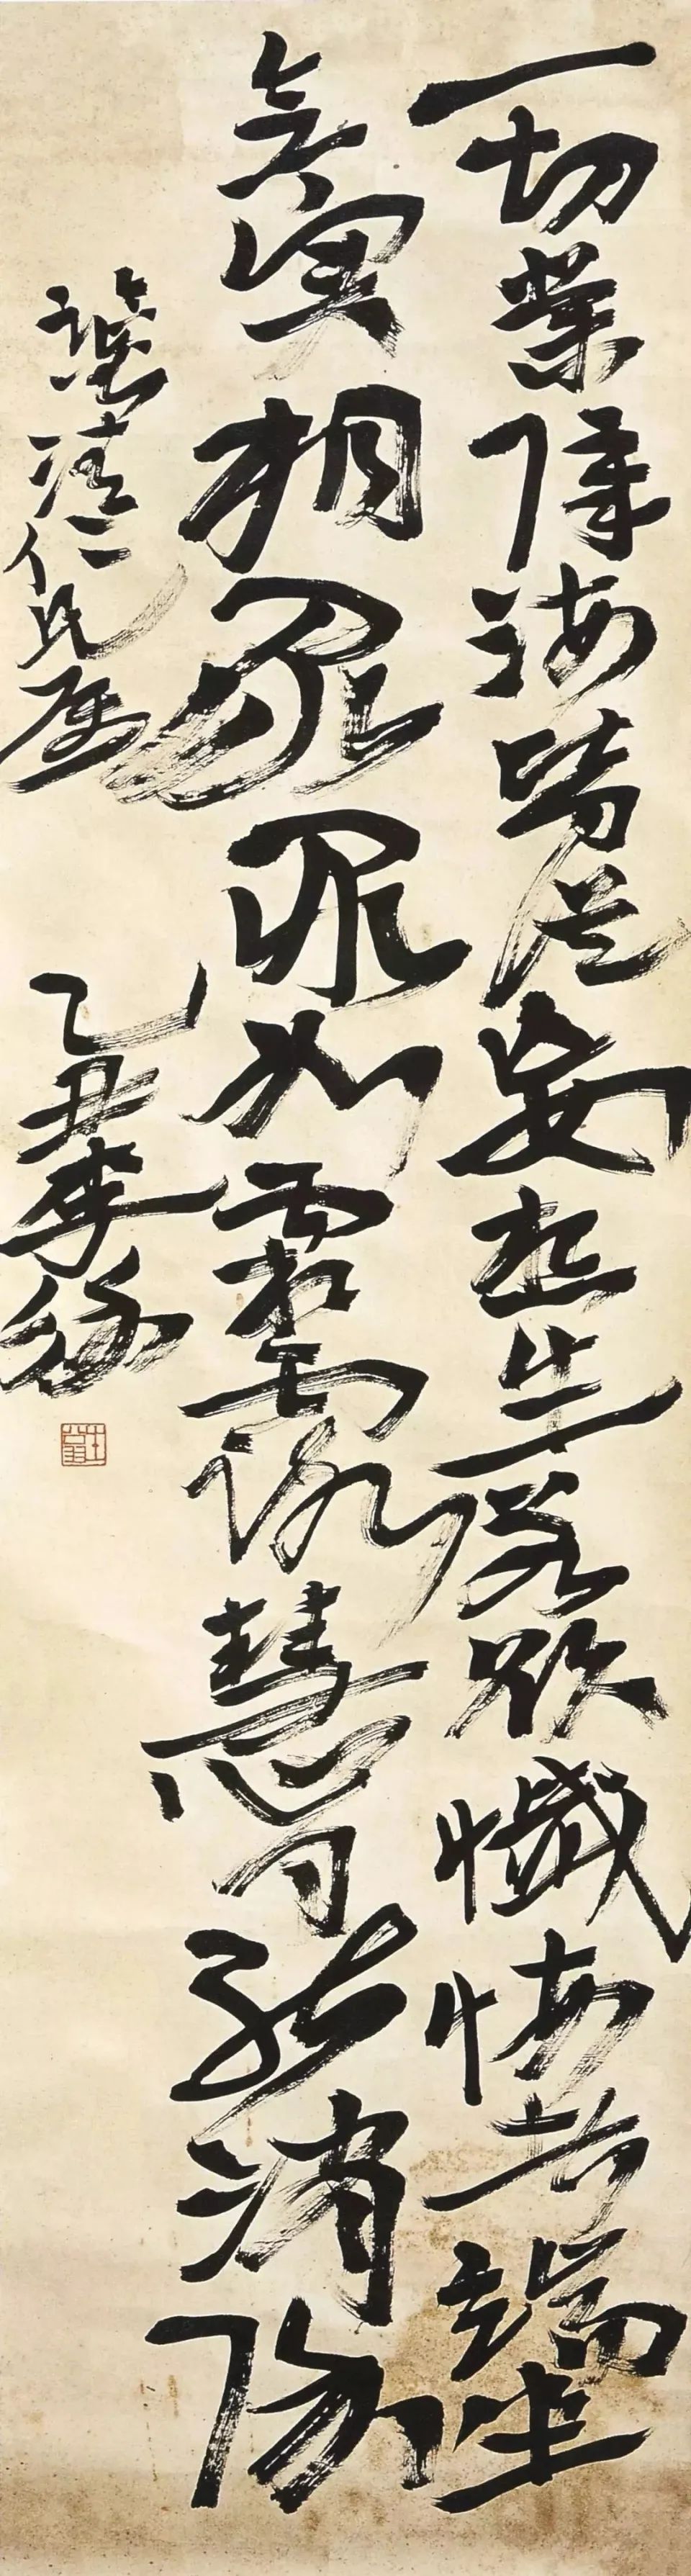 一切業障海皆從妄想生若欲懺悔者端坐
念實相眾罪如霜露慧日能消除
清仁兄属
乙丑李徐